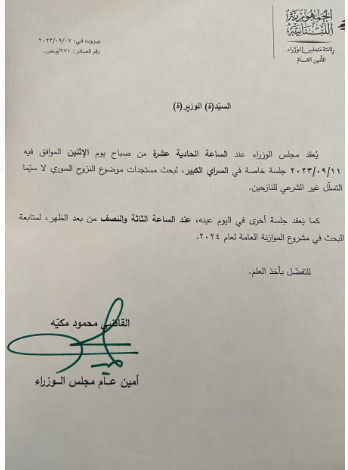 الجمهورية
اللبنانية
رئاسة مجلس الوزراء
الأمين العام
بيروت في: ٢٠٢٣/٠٩/٠٧
رقم الصادر: ٩٧١/م.ص.
السيّد(ة) الوزير(ة)
يُعقد مجلس الوزراء عند الساعة الحادية عشرة من صباح يوم الإثنين الموافق فيه
٢٠٢٣/٠٩/١١ جلسة خاصة في السراي الكبير، لبحث مستجدات موضوع النزوح السوري لا سيّما
التسلّل غير الشرعي للنازحين.
كما يَعقد جلسة أخرى في اليوم عينه، عند الساعة الثالثة والنصف من بعد الظهر، لمتابعة
البحث في مشروع الموازنة العامة لعام ٢٠٢٤.
للتفضّل بأخذ العلم.
القاضي محمود مكيّه
أمين عـام مجلس الـوزراء